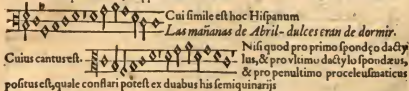 Cui simile est hoc Hispanum
Las mañanas de Abril- dulces eran de dormir.
Cuius cantus est.
Nisi quod pro primo spondęo dacty
lus, & pro vltimo dactylo spondæus,
& pro penultimo proceleusmaticus
positus est, quale conflari potest ex duabus his semiquinarijs